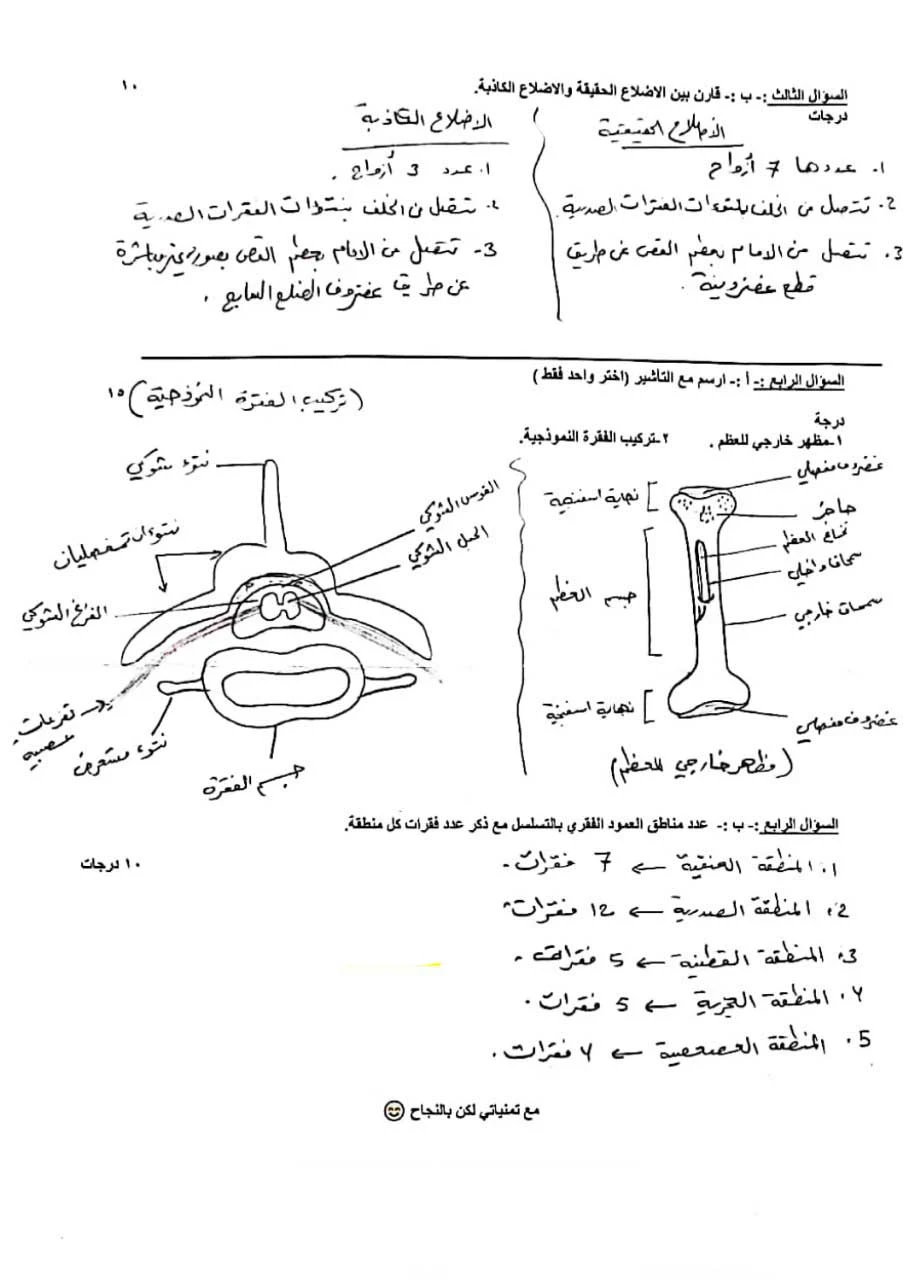 السؤال الثالث :- ب :- قارن بين الاضلاع الحقيقة والاضلاع الكاذبة.
١٠
درجات
الأضلاع الحقيقية
1. عددها 7 أزواج
2. تتصل من الخلف بنتوءات الفقرات الصدرية.
3. تتصل من الامام بعظم القص عن طريق
قطع غضروفية.
الأضلاع الكاذبة
1. عدد 3 أزواج.
2. تتصل من الخلف بنتوءات الفقرات الصدرية
3- تتصل من الامام بعظم القص بصورة غير مباشرة
عن طريق غضروف الضلع السابع.
السؤال الرابع :- أ :- ارسم مع التأشير (اختر واحد فقط)
(تركيب الفقرة النموذجية) ١٥
درجة
١-مظهر خارجي للعظم .
٢-تركيب الفقرة النموذجية.
غضروف مفصلي
حاجز
نخاع العظم
سمحاق داخلي
خارجي
غضروف مفصلي
نهاية اسفنجية
جسم العظم
نهاية اسفنجية
(مظهر خارجي للعظم)
نتوء شوكي
القوس الشوكي
الحبل الشوكي
نتوءان تمفصليان
الفراغ الشوكي
تفرعات
عصبية
نتوء مستعرض
جسم الفقرة
السؤال الرابع :- ب :- عدد مناطق العمود الفقري بالتسلسل مع ذكر عدد فقرات كل منطقة.
١٠ درجات
1. المنطقة العنقية ← 7 فقرات.
2. المنطقة الصدرية ← 12 فقرات.
3. المنطقة القطنية ← 5 فقرات.
4. المنطقة العجزية ← 5 فقرات.
5. المنطقة العصعصية ← 4 فقرات.
مع تمنياتي لكن بالنجاح 😊